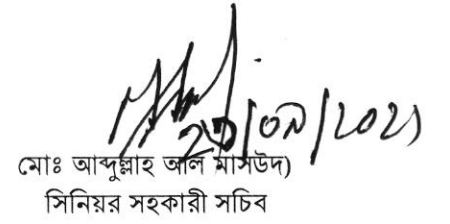 /০৯/২০২১
মোঃ আব্দুল্লাহ আল মাসউদ)
সিনিয়র সহকারী সচিব